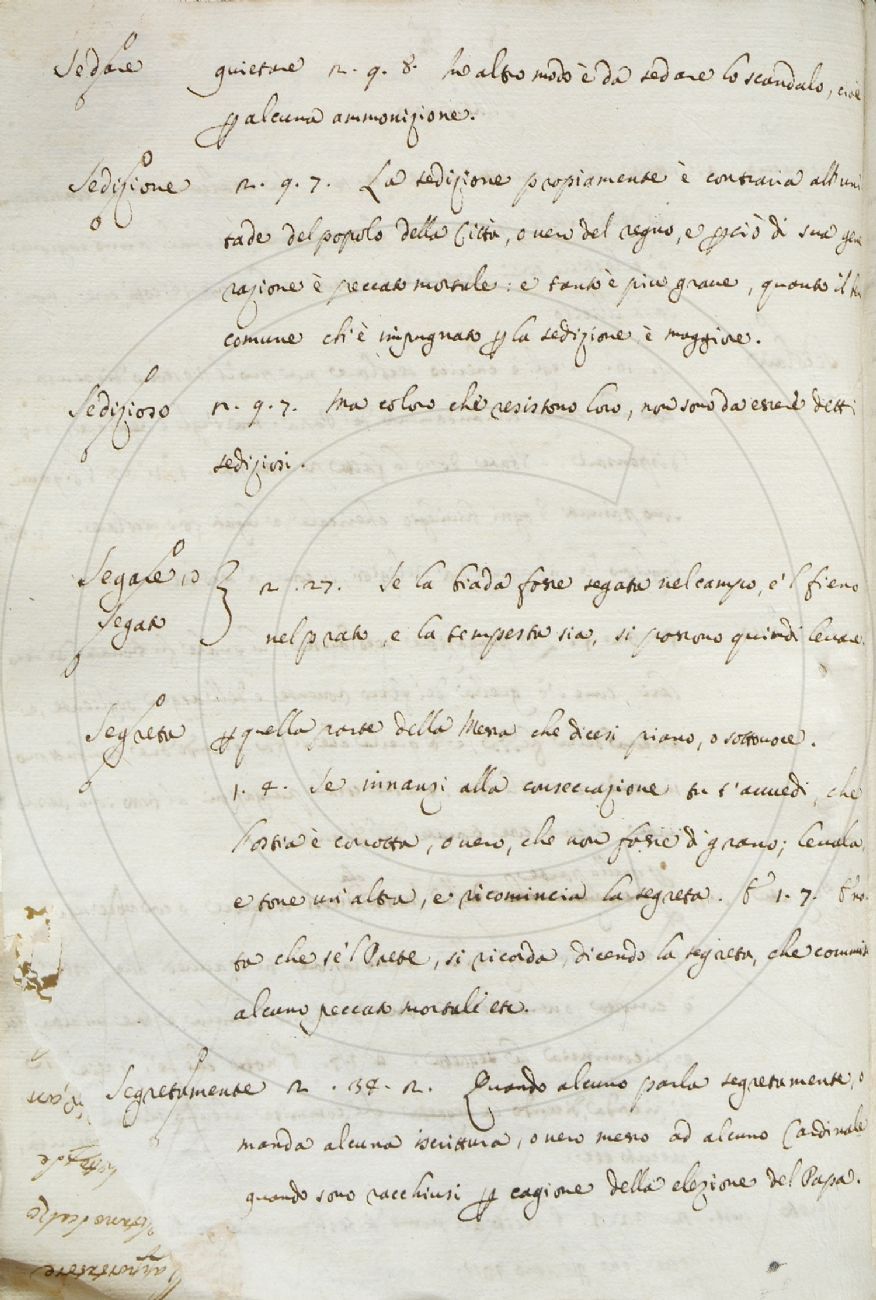 Sedare quietare 2. 9. 8. In altro modo è da sedare lo scandalo, cioè
p alcuna ammonizione.
Sedizione 2. 9. 7. La sedizione propiamente è contraria all'uni
tade del popolo della Città, overo del regno, e pciò di sua gene
razione è peccato mortale: e tanto è piu grave, quanto il
comune ch'è impugnato p la sedizione è maggiore.
Sedizioso 2. 9. 7. Ma coloro che resistono loro, non sono da essere detti
sediziosi.
Segare, o
Segato
2. 27. Se la biada fosse segata nel campo, e 'l fieno
nel prato, e la tempesta sia, si possono quindi levare.
Segreta p quella parte della Messa che dicesi piano, o sottovoce.
1. 4. Se innanzi alla consecrazione tu t'avvedi, che
l'ostia è corrotta, overo, che non fosse di grano; levala,
e tone un'altra, e ricomincia la segreta. 1. 7.
ta che se 'l Prete, si ricorda, dicendo la segreta, che commise
alcuno peccato mortale etc.
Segretamente 2. 34. 2. Quando alcuno parla segretamente, o
manda alcuna iscrittura, overo messo ad alcuno Cardinale
quando sono racchiusi p cagione della elezione del Papa.